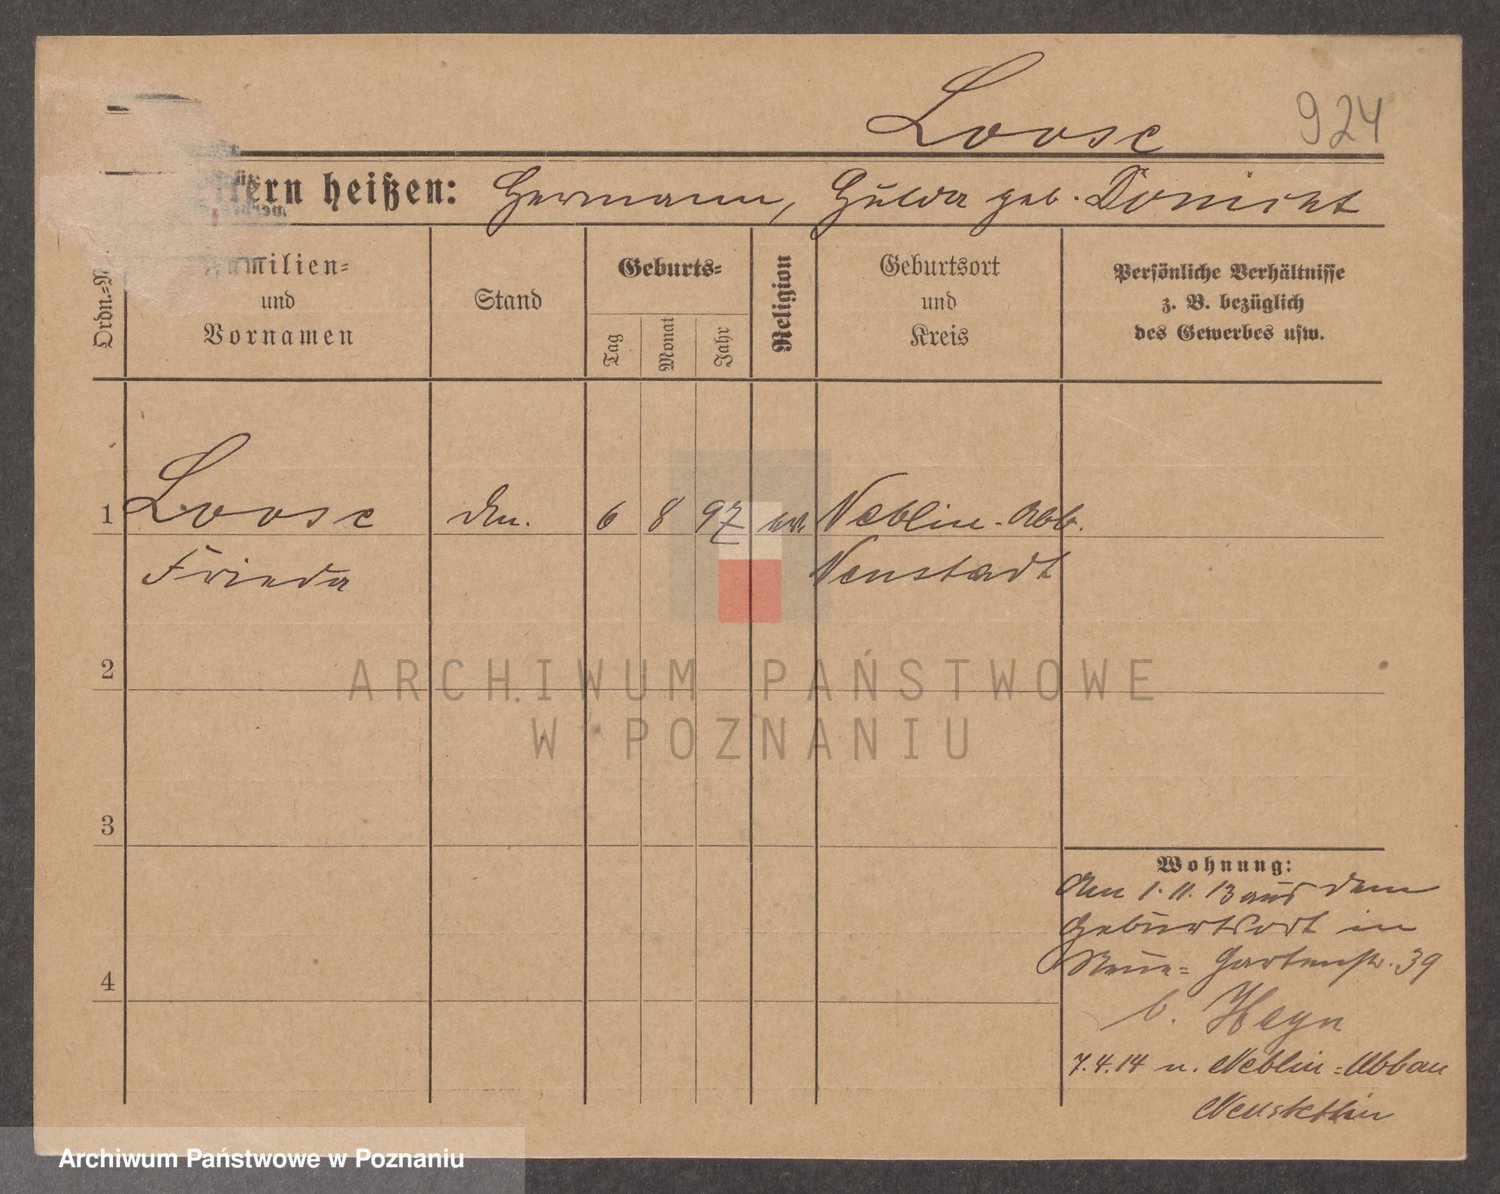 Loose 924
Eltern heißen: Hermann, Hulda geb. Donicht
Ordn.=N
Familien=
und
Vornamen
Stand
Geburts=
Tag
Monat
Jahr
Religion
Geburtsort
und
Kreis
Persönliche Verhältnisse
z. B. bezüglich
des Gewerbes usw.
1 Loose 6 8 97 ev. Neblin-Abb.
Frieda Neustadt
2
3
4
Wohnung:
Am 1.11.13 aus dem
Geburtsort in
Neue= Gartenstr. 39
b. Heyn
7.4.14 n. Neblin=Abbau
Neustettin
ARCHIWUM PAŃSTWOWE
W POZNANIU
Archiwum Państwowe w Poznaniu